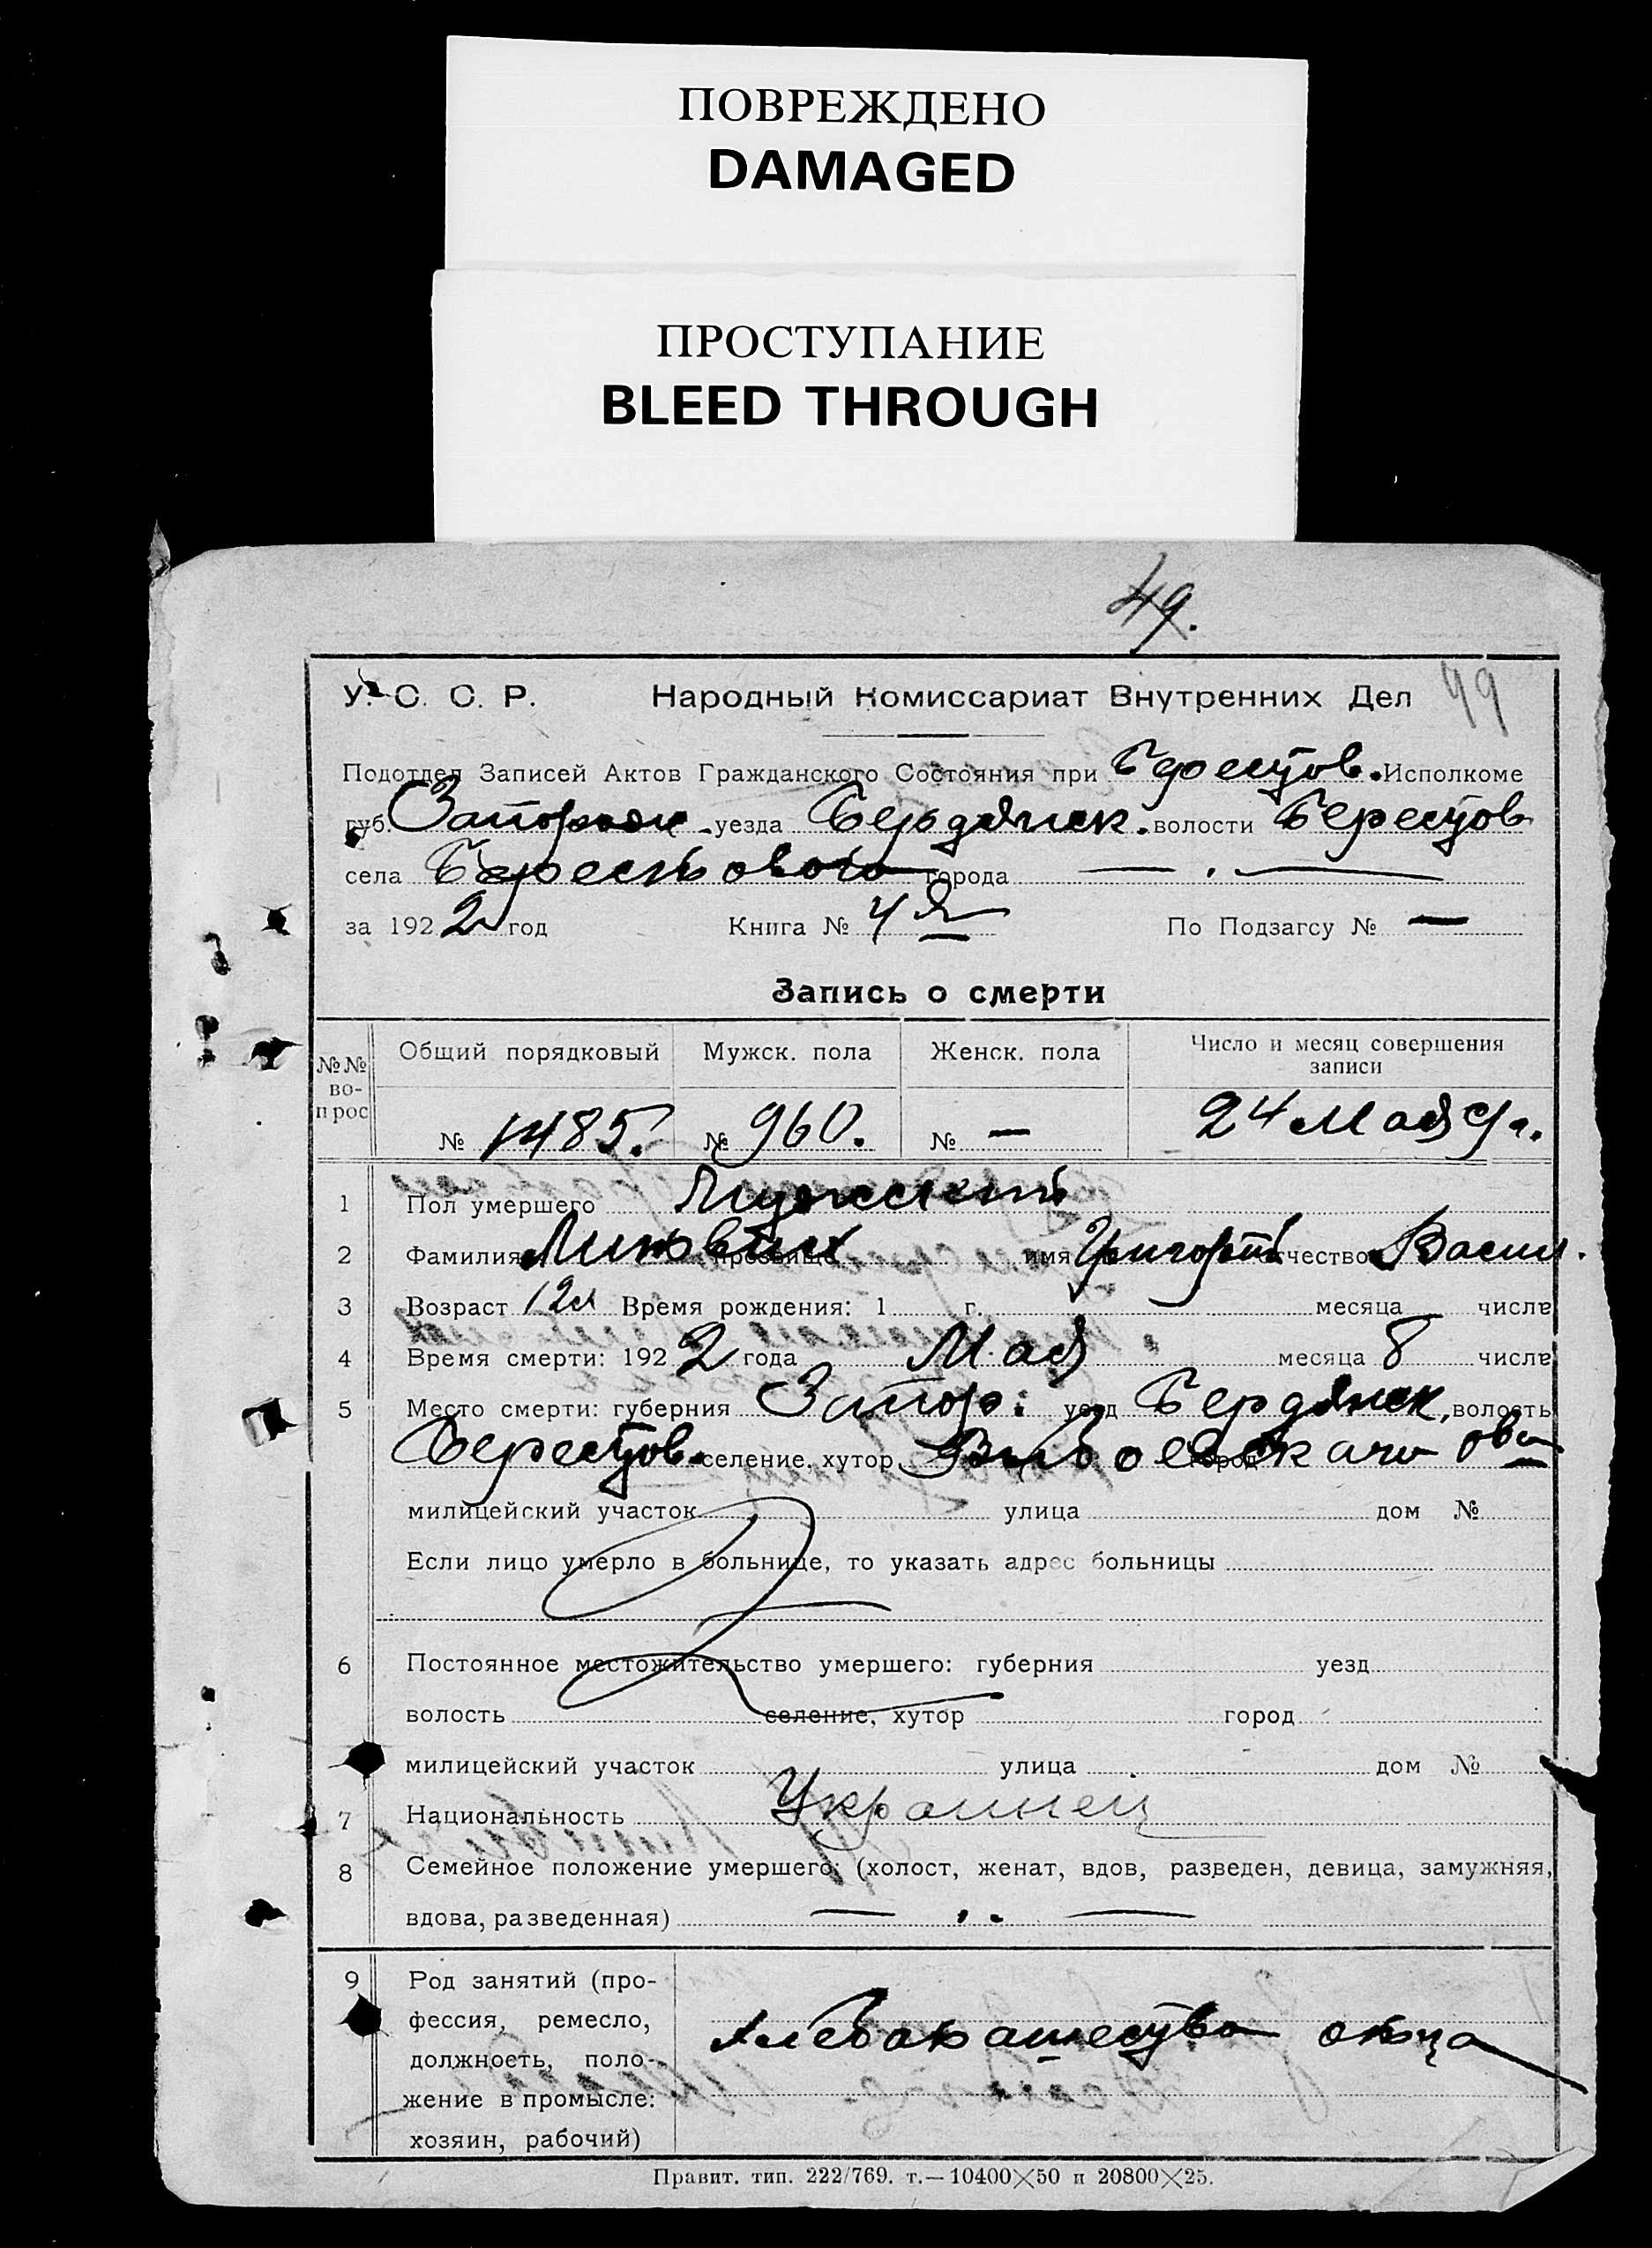 ПОВРЕЖДЕНО
DAMAGED
ПРОСТУПАНИЕ
BLEED THROUGH
49.
У. С. С. Р. Народный Комиссариат Внутренних Дел 49
Подотдел Записей Актов Гражданского Состояния при Берестов. Исполкоме
губ. Запорож. уезда Бердянск. волости Берестов
села города — . —
за 1922 год Книга № 4я По Подзагсу № —
Запись о смерти
№№ вопрос Общий порядковый Мужск. пола Женск. пола Число и месяц совершения записи
№ 1485. № 960. № — 24 Мая
1 Пол умершего Мужской
2 Фамилия прозвище имя Григорий отчество Васил.
3 Возраст 12 л Время рождения: 1 г. месяца числа
4 Время смерти: 1922 года Мая месяца 8 числа
5 Место смерти: губерния Запор: уезд Бердянск, волость
Берестов. селение, хутор город
милицейский участок улица дом №
Если лицо умерло в больнице, то указать адрес больницы
6 Постоянное местожительство умершего: губерния уезд
волость селение, хутор город
милицейский участок улица дом №
7 Национальность Украинец
8 Семейное положение умершего: (холост, женат, вдов, разведен, девица, замужняя,
вдова, разведенная) — . . —
9 Род занятий (про-
фессия, ремесло,
должность, поло-
жение в промысле:
хозяин, рабочий)
отца
Правит. тип. 222/769. т.—10400×50 и 20800×25.